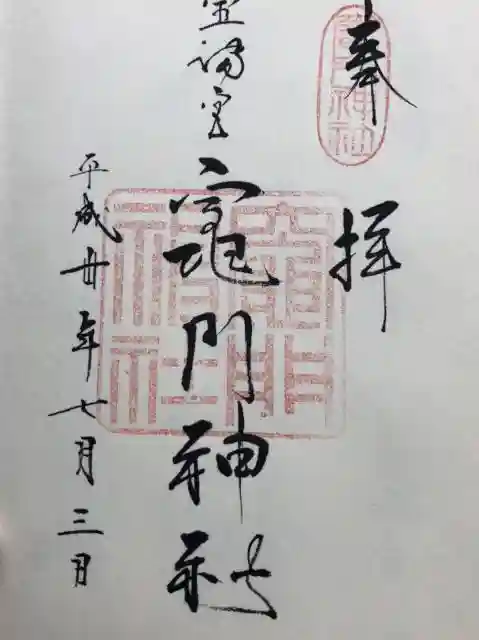 奉拝
竈門神社
宝満宮
竈門神社
竈門神社
平成卅年七月三日